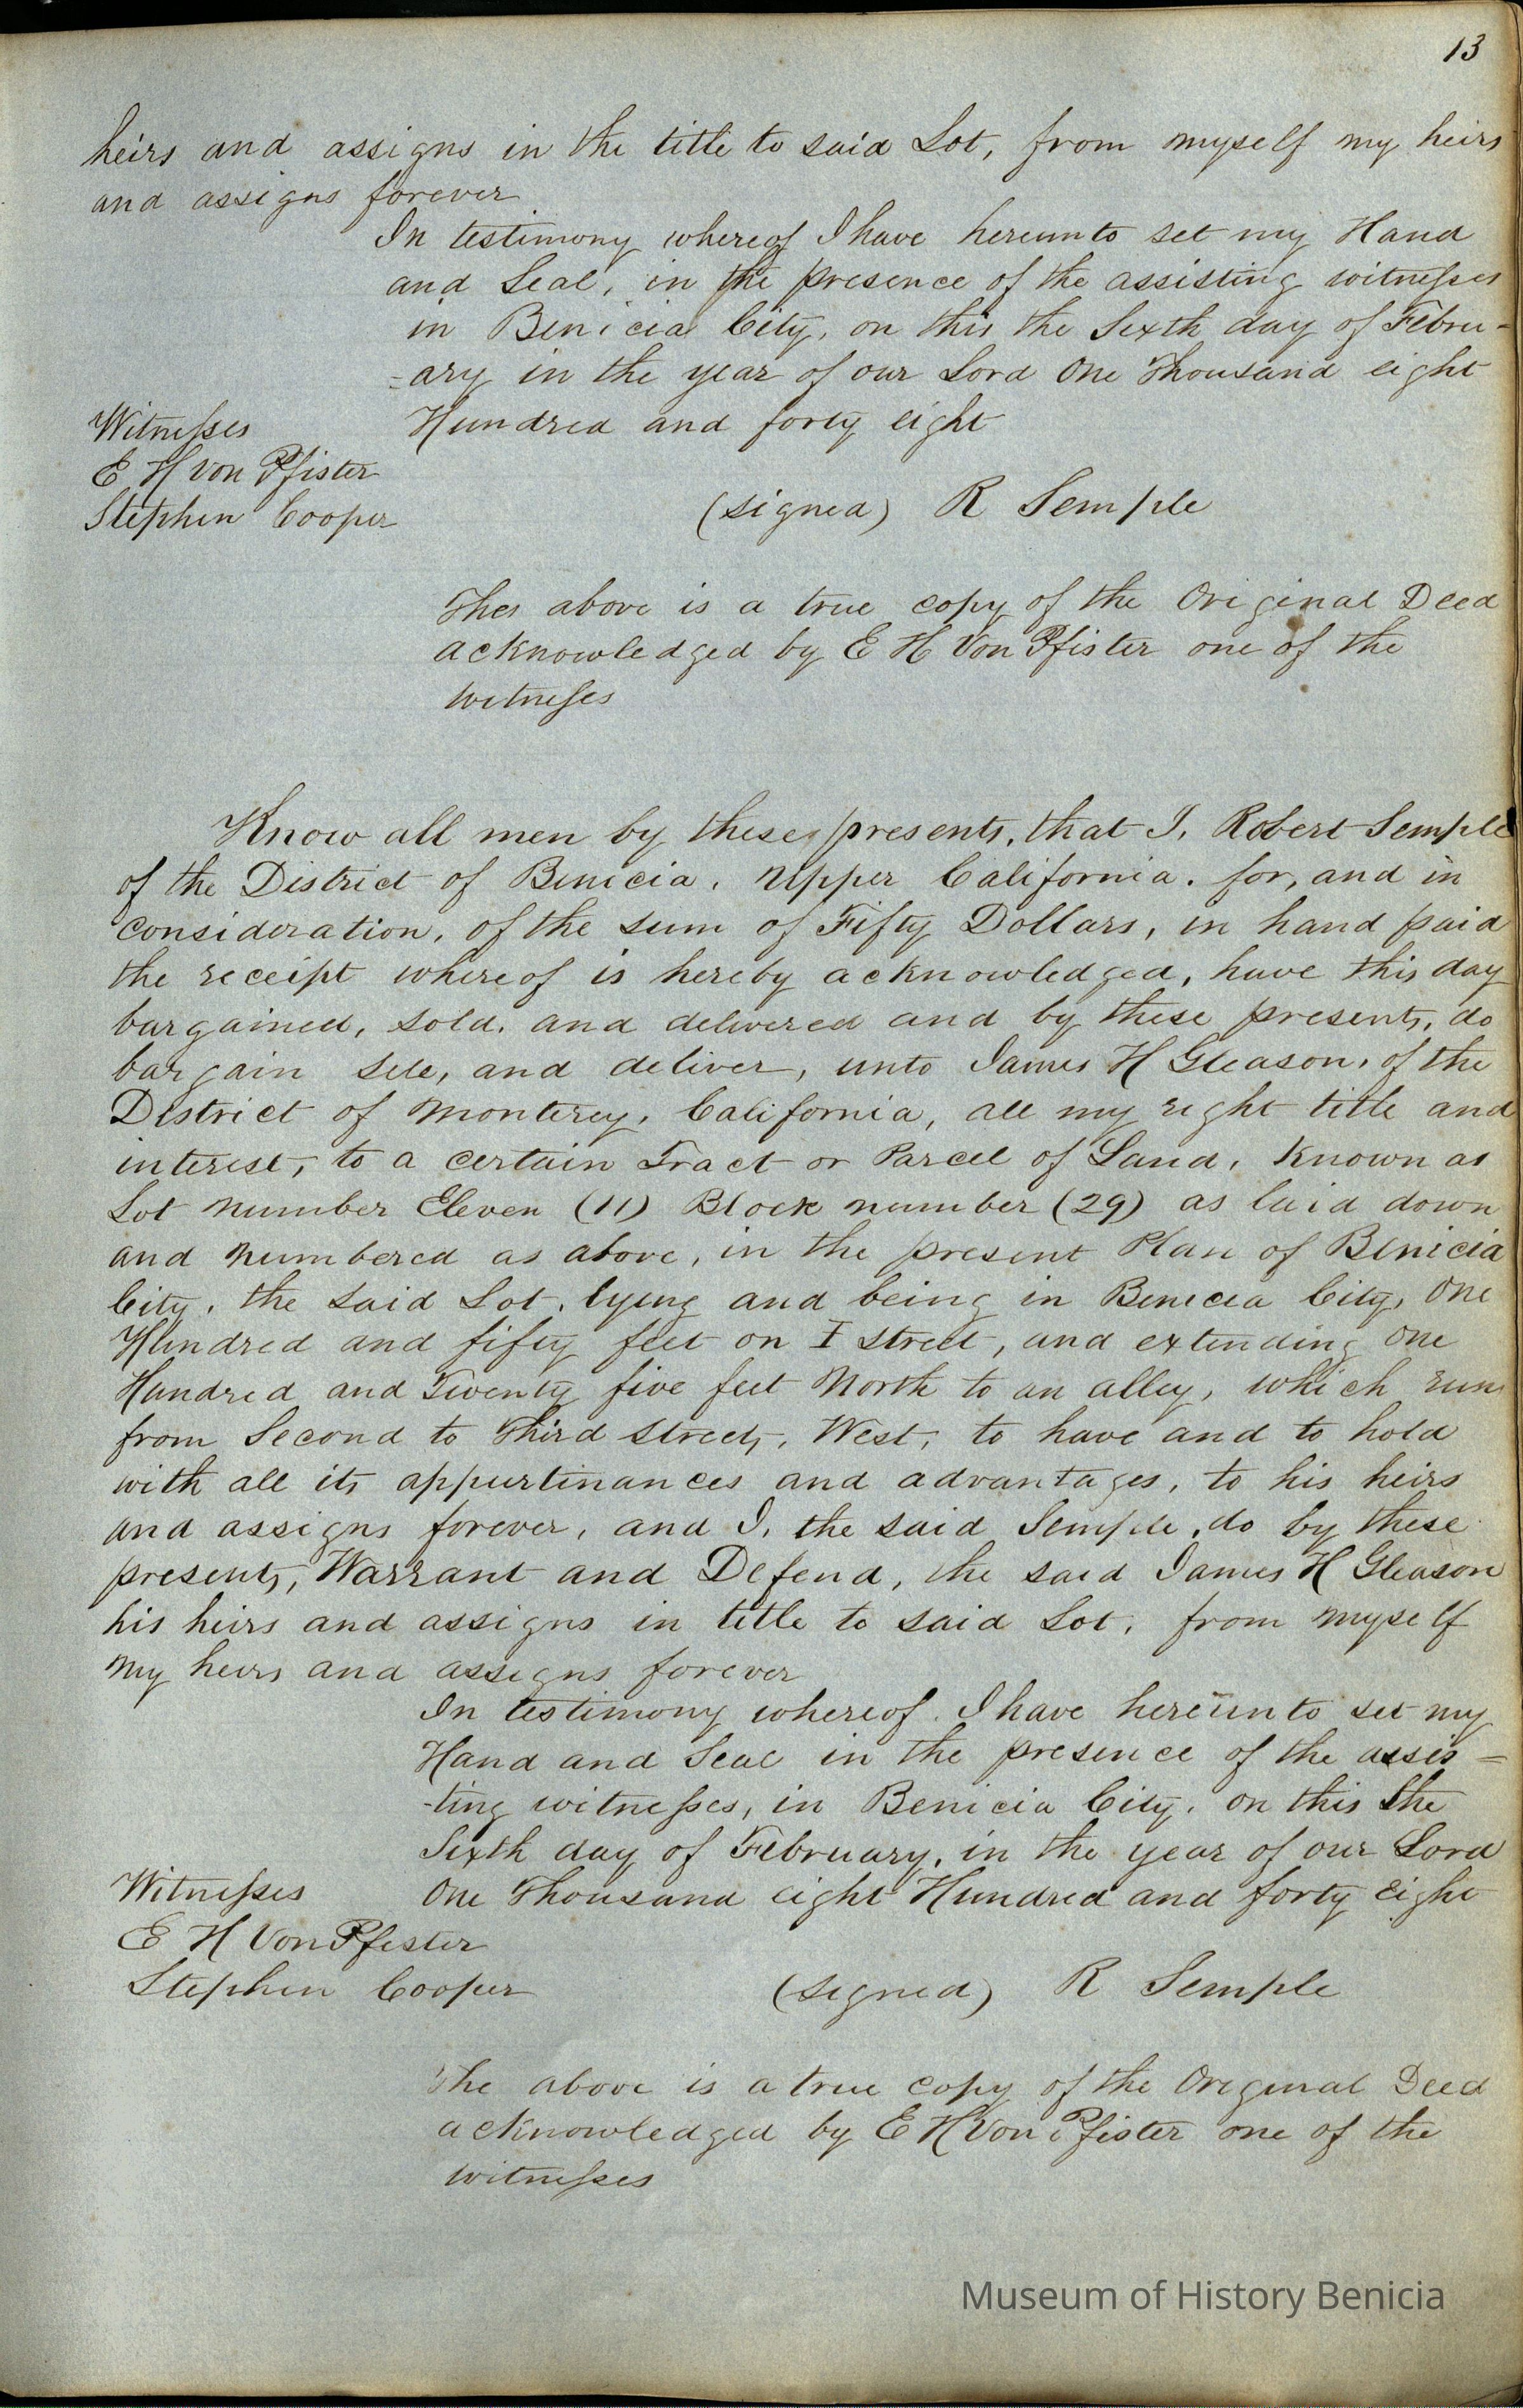 13
heirs and assigns in the title to said Lot, from myself my heirs
and assigns forever
In testimony whereof I have hereunto set my Hand
and Seal, in the presence of the assisting witnesses
in Benicia City, on this the Sixth day of Febru-
=ary in the year of our Lord One Thousand eight
Hundred and forty eight
Witnesses
E H Von Pfister
Stephen Cooper
(signed) R Semple
The above is a true copy of the Original Deed
acknowledged by E H Von Pfister one of the
witnesses
Know all men by these presents, that I, Robert Semple
of the District of Benicia, Upper California. for, and in
consideration, of the sum of Fifty Dollars, in hand paid
the receipt whereof is hereby acknowledged, have this day
bargained, sold, and delivered and by these presents, do
bargain sell, and deliver, unto James H Gleason, of the
District of Monterey, California, all my right title and
interest, to a certain Tract or Parcel of Land, Known as
Lot number Eleven (11) Block number (29) as laid down
and numbered as above, in the present Plan of Benicia
City, the said Lot, lying and being in Benicia City, One
Hundred and fifty feet on I street, and extending One
Hundred and Twenty five feet North to an alley, which runs
from Second to Third streets, West, to have and to hold
with all its appurtinances and advantages, to his heirs
and assigns forever, and I, the said Semple, do by these
presents, Warrant and Defend, the said James H Gleason
his heirs and assigns in title to said Lot, from myself
my heirs and assigns forever
In testimony whereof I have hereunto set my
Hand and Seal in the presence of the assis-
-ting witnesses, in Benicia City, on this the
Sixth day of February, in the year of our Lord
One Thousand eight Hundred and forty eight
Witnesses
E H Von Pfister
Stephen Cooper
(signed) R Semple
The above is a true copy of the Original Deed
acknowledged by E H Von Pfister one of the
witnesses
Museum of History Benicia